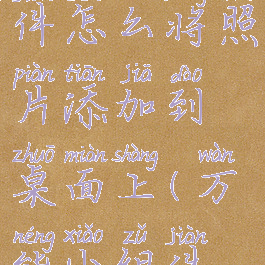 件怎么将照
piàn tiān jiā dào
片添加到
zhuō miàn shàng wàn
桌面上(万
néng xiǎo zǔ jiàn
能小组件